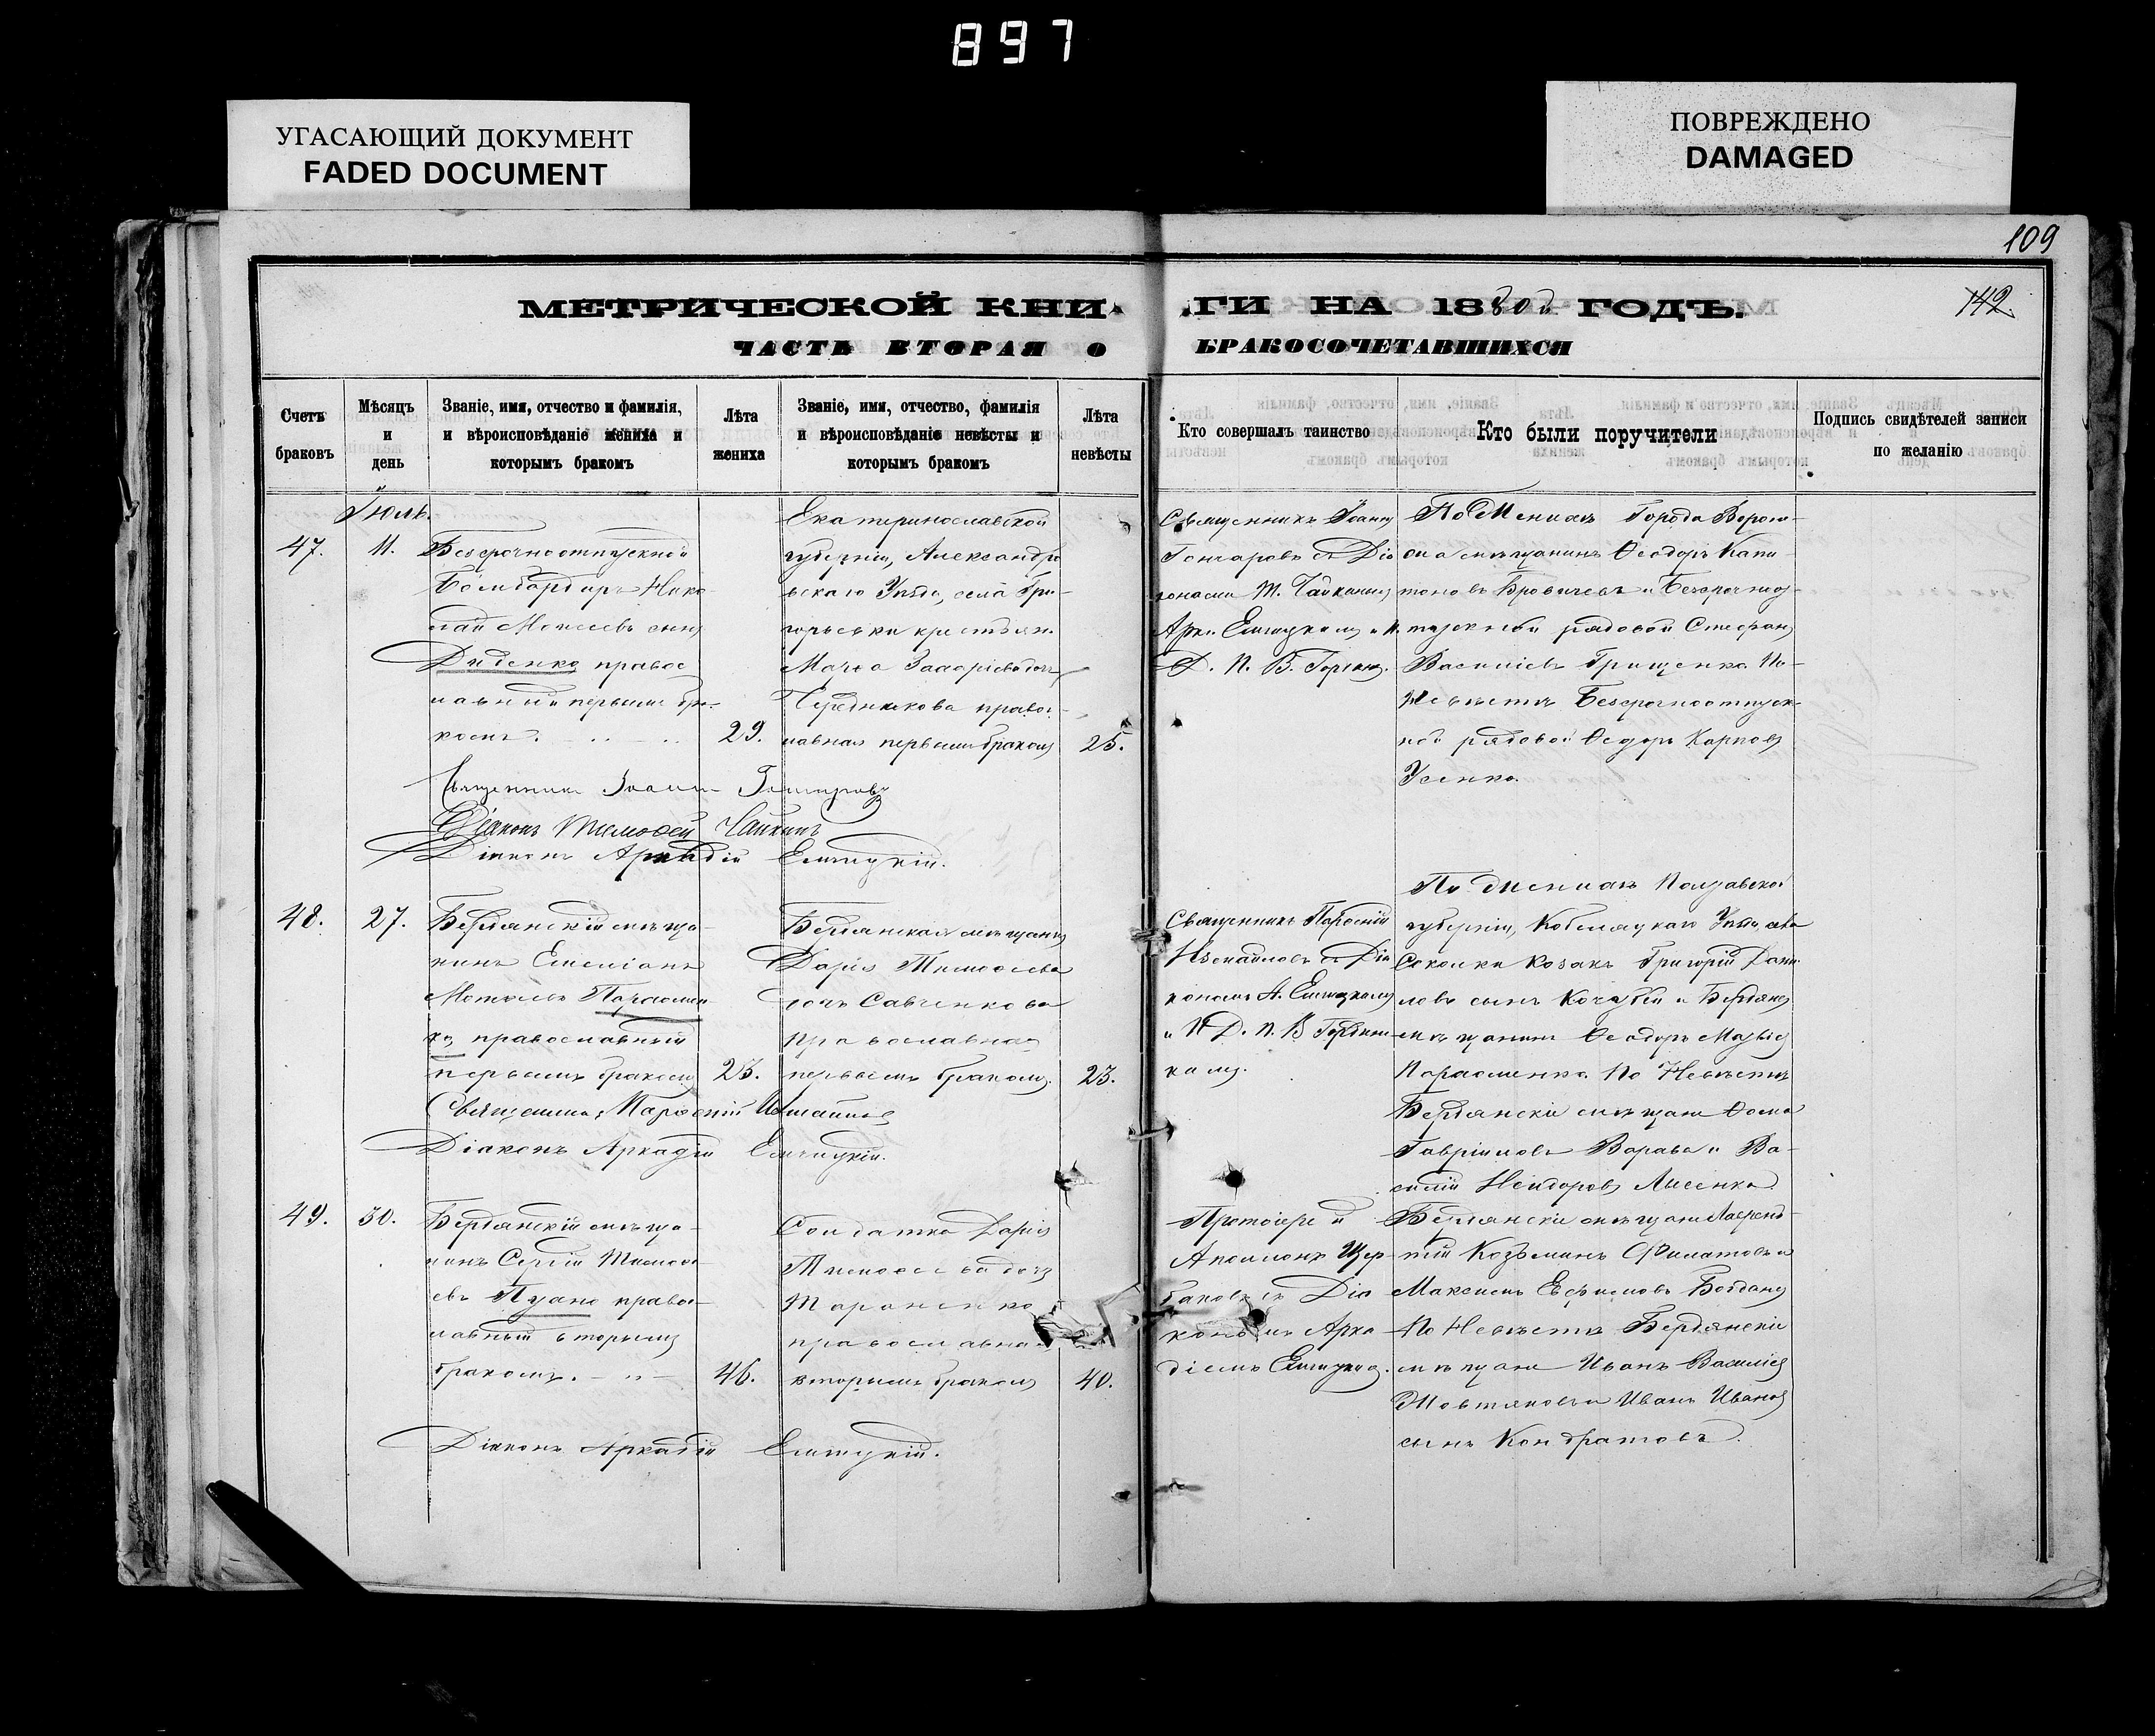 897
УГАСАЮЩИЙ ДОКУМЕНТ
FADED DOCUMENT
ПОВРЕЖДЕНО
DAMAGED
109
МЕТРИЧЕСКОЙ КНИ
ГИ НА 1880й ГОДЪ.
142.
ЧАСТЬ ВТОРАЯ О
БРАКОСОЧЕТАВШИХСЯ
Счетъ
браковъ
Мѣсяцъ
и
день
Званіе, имя, отчество и фамилія,
и вѣроисповѣданіе жениха и
которымъ бракомъ
Лѣта
жениха
Званіе, имя, отчество, фамилія
и вѣроисповѣданіе невѣсты и
которымъ бракомъ
Лѣта
невѣсты
Кто совершалъ таинство
Кто были поручители
Подпись свидѣтелей записи
по желанію
Іюль.
47.
11.
Безсрочноотпускной
Бомбардиръ Нико
лай Моисеевъ сынъ
Диденко правос
лавный первымъ бра-
комъ.
29.
Екатеринославской
губерніи, Александро
вскаго Уѣзда, села Гри-
горьевки крестьян.
Марѳа Захаріева дочь
Чередникова правос
лавная первымъ бракомъ
25.
Священникъ Іоаннъ
Гончаровъ съ Діа
кономъ Т. Чайкинымъ
Арк. Елчицкимъ и И.
Д. П. В. Горбин.
По Женихѣ Города Верхо-
мѣщанинъ Ѳеодоръ Капи
тоновъ и Безсрочноот-
пускной рядовой Стефанъ
Василіевъ Грищенко. По
Невѣстѣ Безсрочноотпуск
ной рядовой Ѳедоръ Карповъ
Усенко.
Священникъ Іоаннъ Гончаровъ
Діаконъ Тимоѳей Чайкинъ
Діаконъ Аркадій Елчицкій.
48.
27.
Бердянскій мѣща-
нинъ Емеліанъ
Матвѣевъ Пархомен
ко, православный
первымъ бракомъ
25.
Бердянская мѣщанка
Дарія Тимоѳеева
дочь Савченкова
православная
первымъ бракомъ.
23.
Священникъ Парѳеній
Измаиловъ съ Діа
кономъ А. Елчицкимъ
и И Д. П. В Горбин
кимъ.
По Женихѣ Полтавской
губерніи, Кобеляцкаго Уѣзда, села
Соколки Козакъ Григорій Дани
ловъ сынъ Кочубей и Бердянс
мѣщанинъ Ѳеодоръ Матвѣев
Пархоменко. По Невѣстѣ
Бердянскіе мѣщане Ѳома
Гавріиловъ Варава и Ва-
силій Исидоровъ Лисенко
Священникъ Парѳеній Измаиловъ
Діаконъ Аркадій Елчицкій.
49.
30.
Бердянскій мѣща-
нинъ Сергій Тимоѳе
евъ Пузано правос-
лавный вторымъ
бракомъ.
46.
Солдатка Дарія
Тимоѳеева дочь
Тараненко
православная
вторымъ бракомъ
40.
Протоіерей
Аполлонъ Щер
баковъ съ Діа
кономъ Арка
діемъ Елчицким.
Бердянскіе мѣщане Лаврен-
тій Козьминъ Филатовъ и
Максимъ Евфимовъ Богданъ
По Невѣстѣ Бердянскіе
мѣщане Иванъ Василіев
Жовтяковъ и Иванъ Ивановъ
сынъ Кондратовъ.
Діаконъ Аркадій Елчицкій.